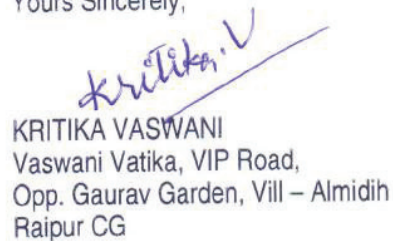 Yours Sincerely,
Kritika.V
KRITIKA VASWANI
Vaswani Vatika, VIP Road,
Opp. Gaurav Garden, Vill – Almidih
Raipur CG